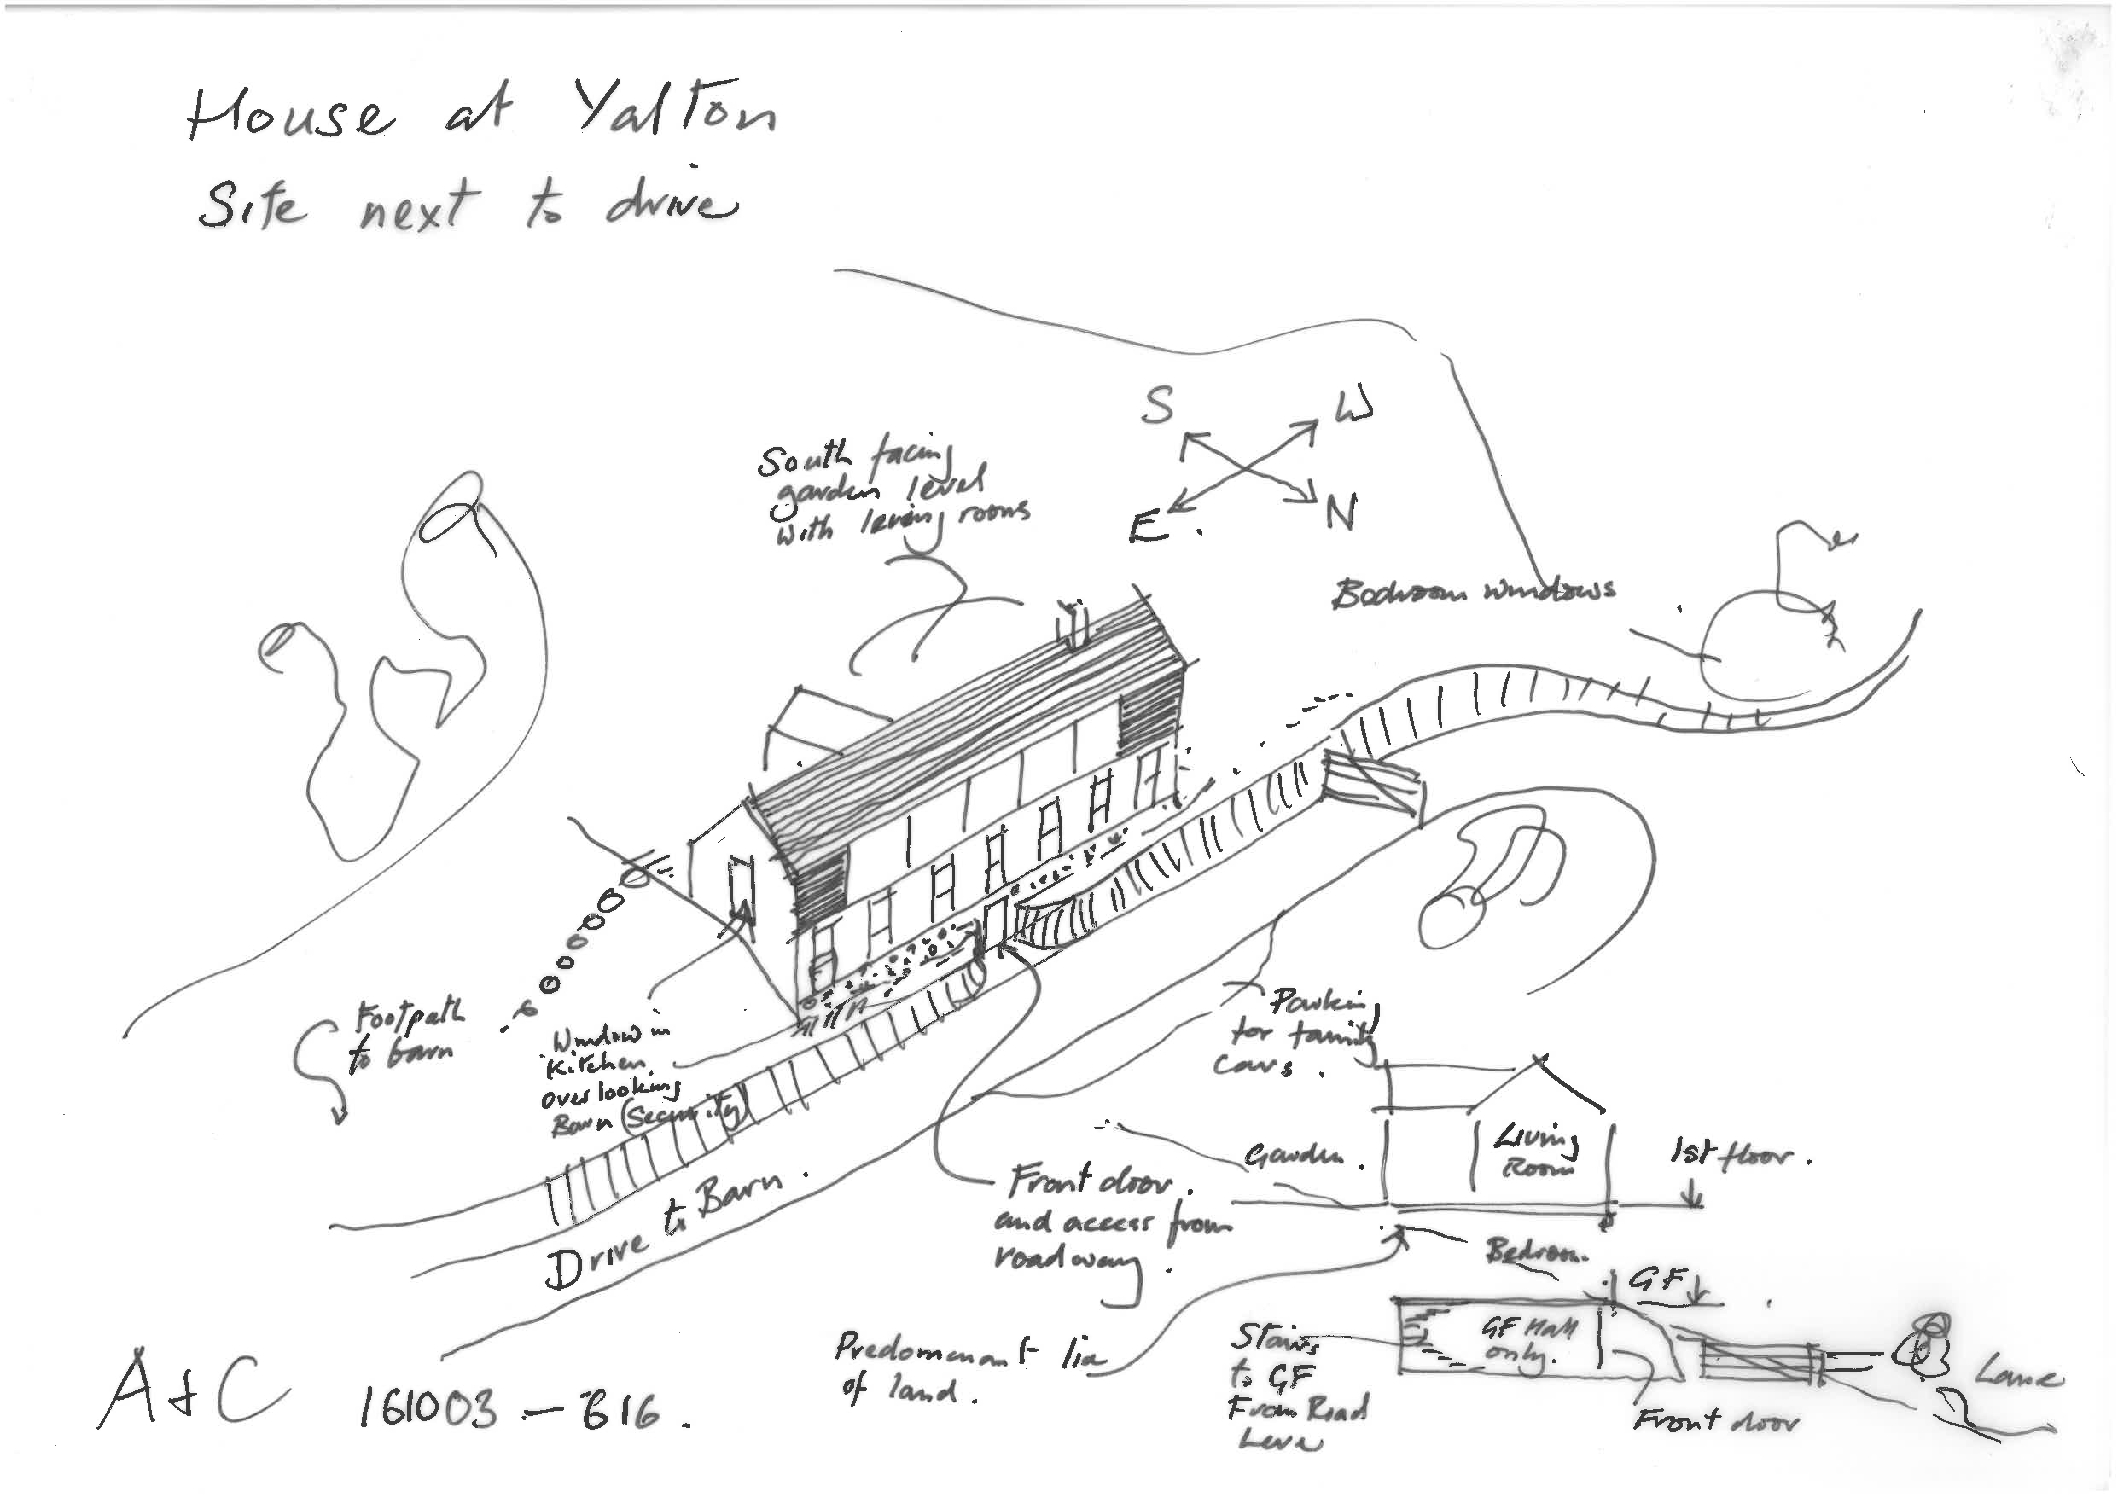 House at Yalton
Site next to drive
S
W
E.
N
South facing
garden level
with living rooms
Bedroom windows
Footpath
to barn
Window in
Kitchen
overlooking
Barn (Security)
Parking
for family
cars.
Drive to Barn.
Front door.
and access from
roadway.
Garden.
Living
Room
1st floor.
Bedroom.
GF
Predominant lie
of land.
Stairs
to GF
From Road
Level
GF Hall
only.
Front door
Lane
A+C 161003-